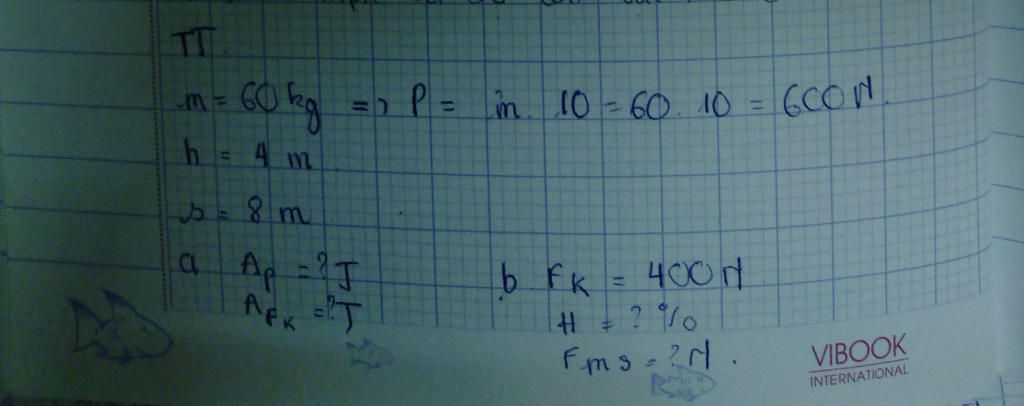 TT
m = 60 kg => P = m. 10 = 60. 10 = 600 N.
h = 4 m
s = 8 m
a A_P = ? J
A_FK = ? J
b. F_K = 400 N
H = ? %
F_ms = ? N.
VIBOOK
INTERNATIONAL